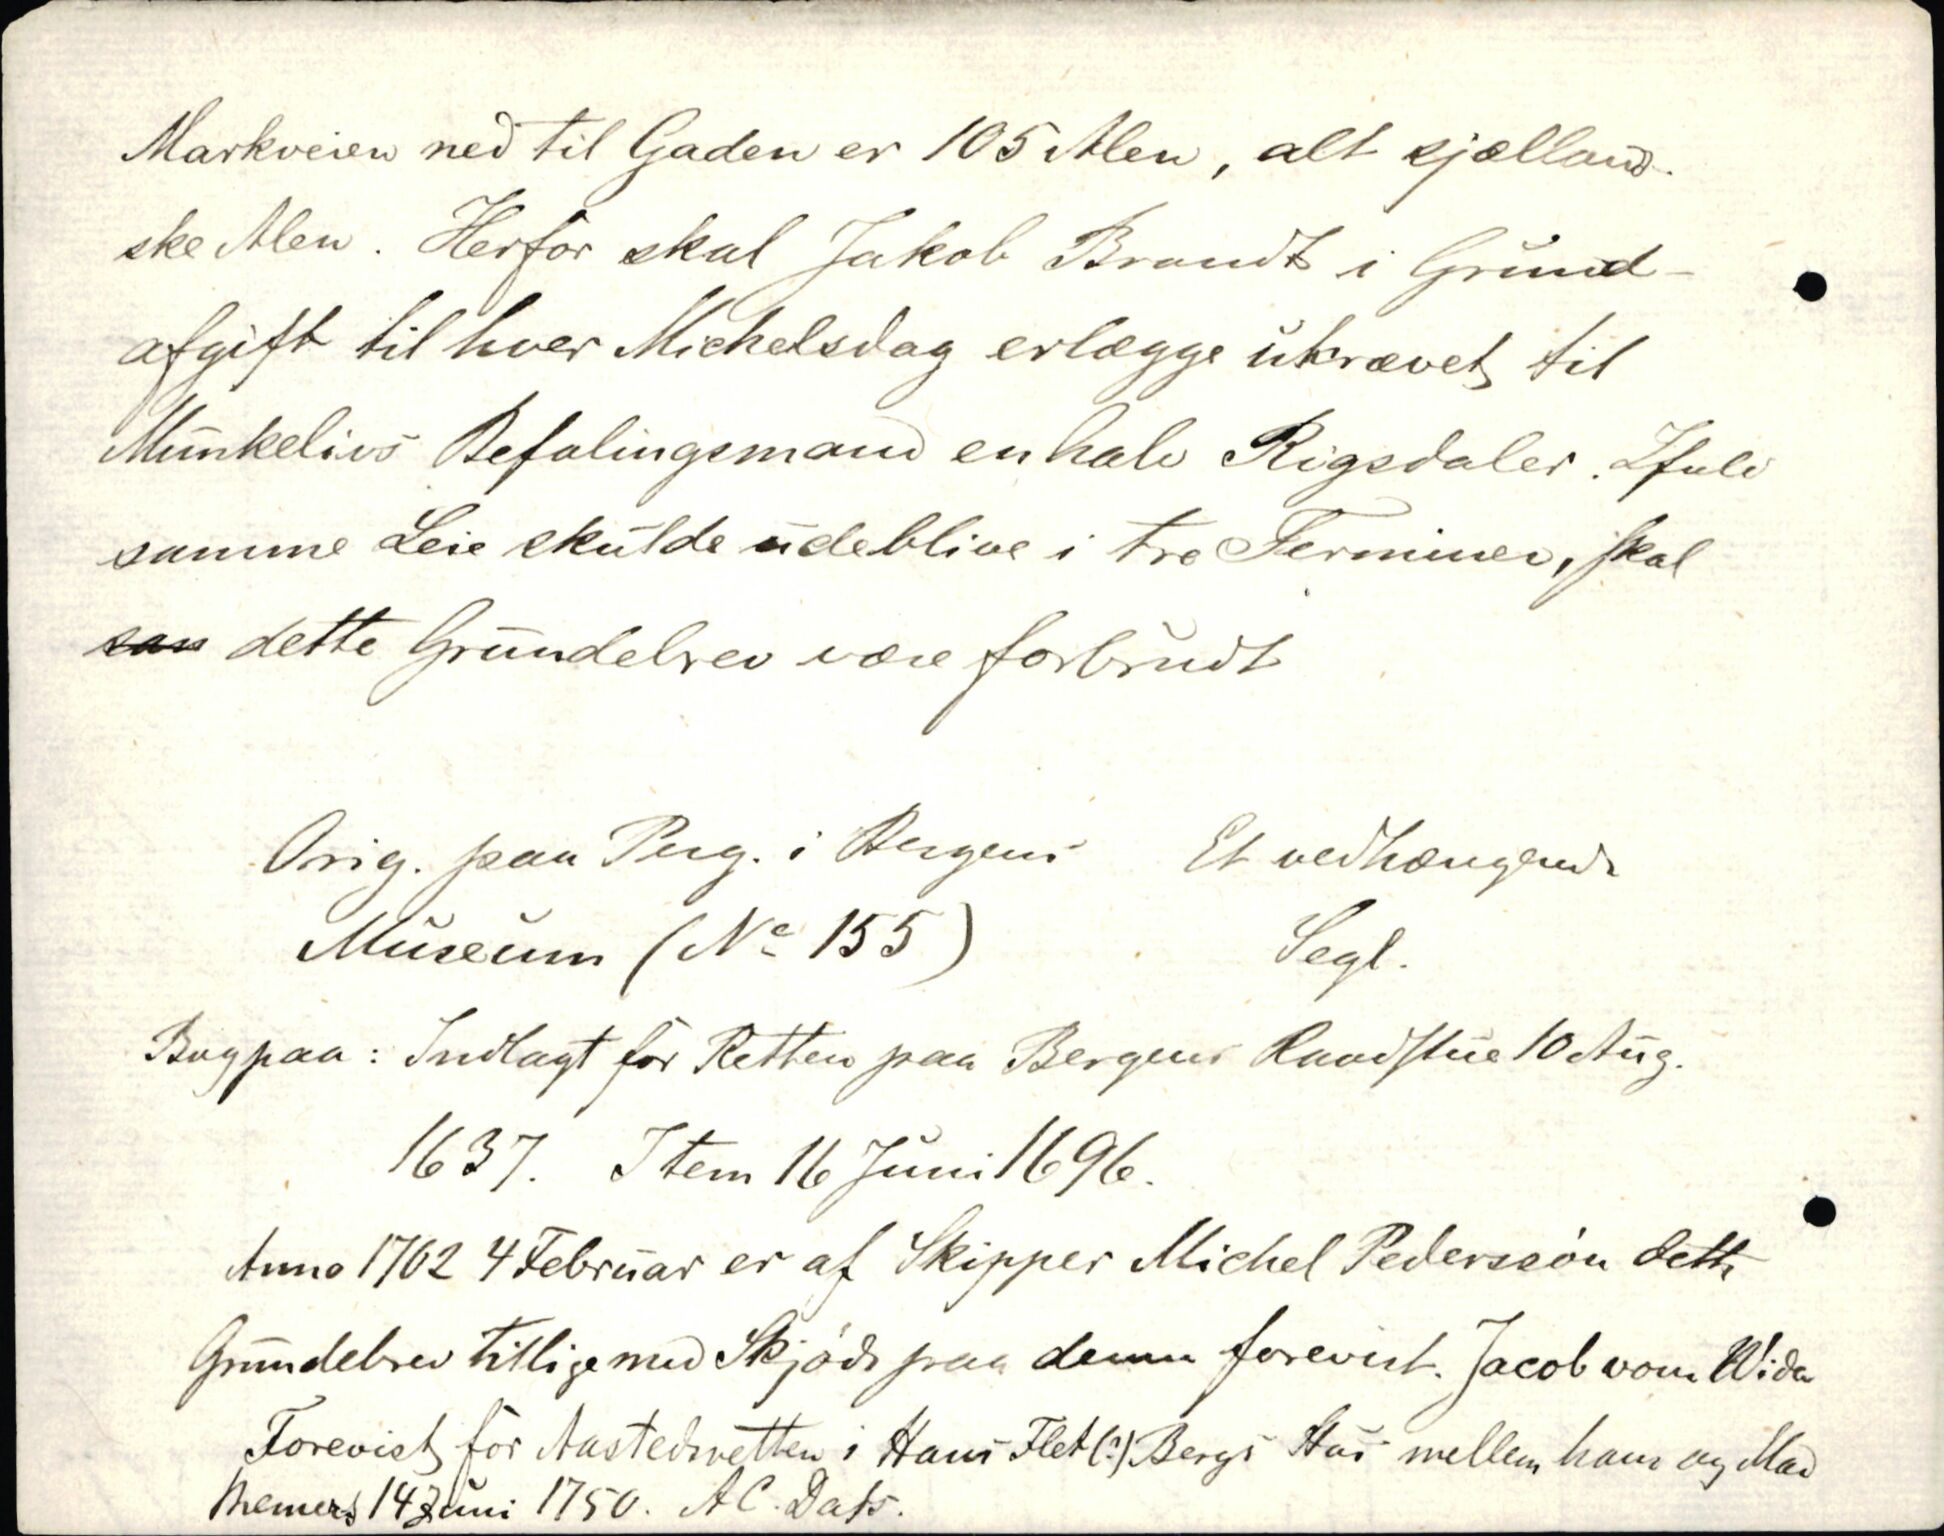 Markveien ned til Gaden er 105 Alen, alt sjælland-
ske Alen. Herfor skal Jakob Brandt i Grund-
afgift til hver Michelsdag erlægge ukrævet til
Munkelivs Befalingsmand en halv Rigsdaler. Ifald
samme Leie skulde udeblive i tre Terminer, skal
saa dette Grundebrev være forbrudt
Orig. paa Perg. i Bergens
Museum (No 155)
Et vedhængende
Segl.
Bagpaa: Indlagt for Retten paa Bergens Raadstue 10 Aug.
1637. Item 16 Juni 1696.
Anno 1702 4 Februar er af Skipper Michel Pederssøn dette
Grundebrev tillige med Skjøde paa denne forevist. Jacob vom Wida
Forevist for Aastedsretten i Hans Flet(?) Bergs Hus mellem ham og Mad
Memers 14 Juni 1750. A C. Dass.